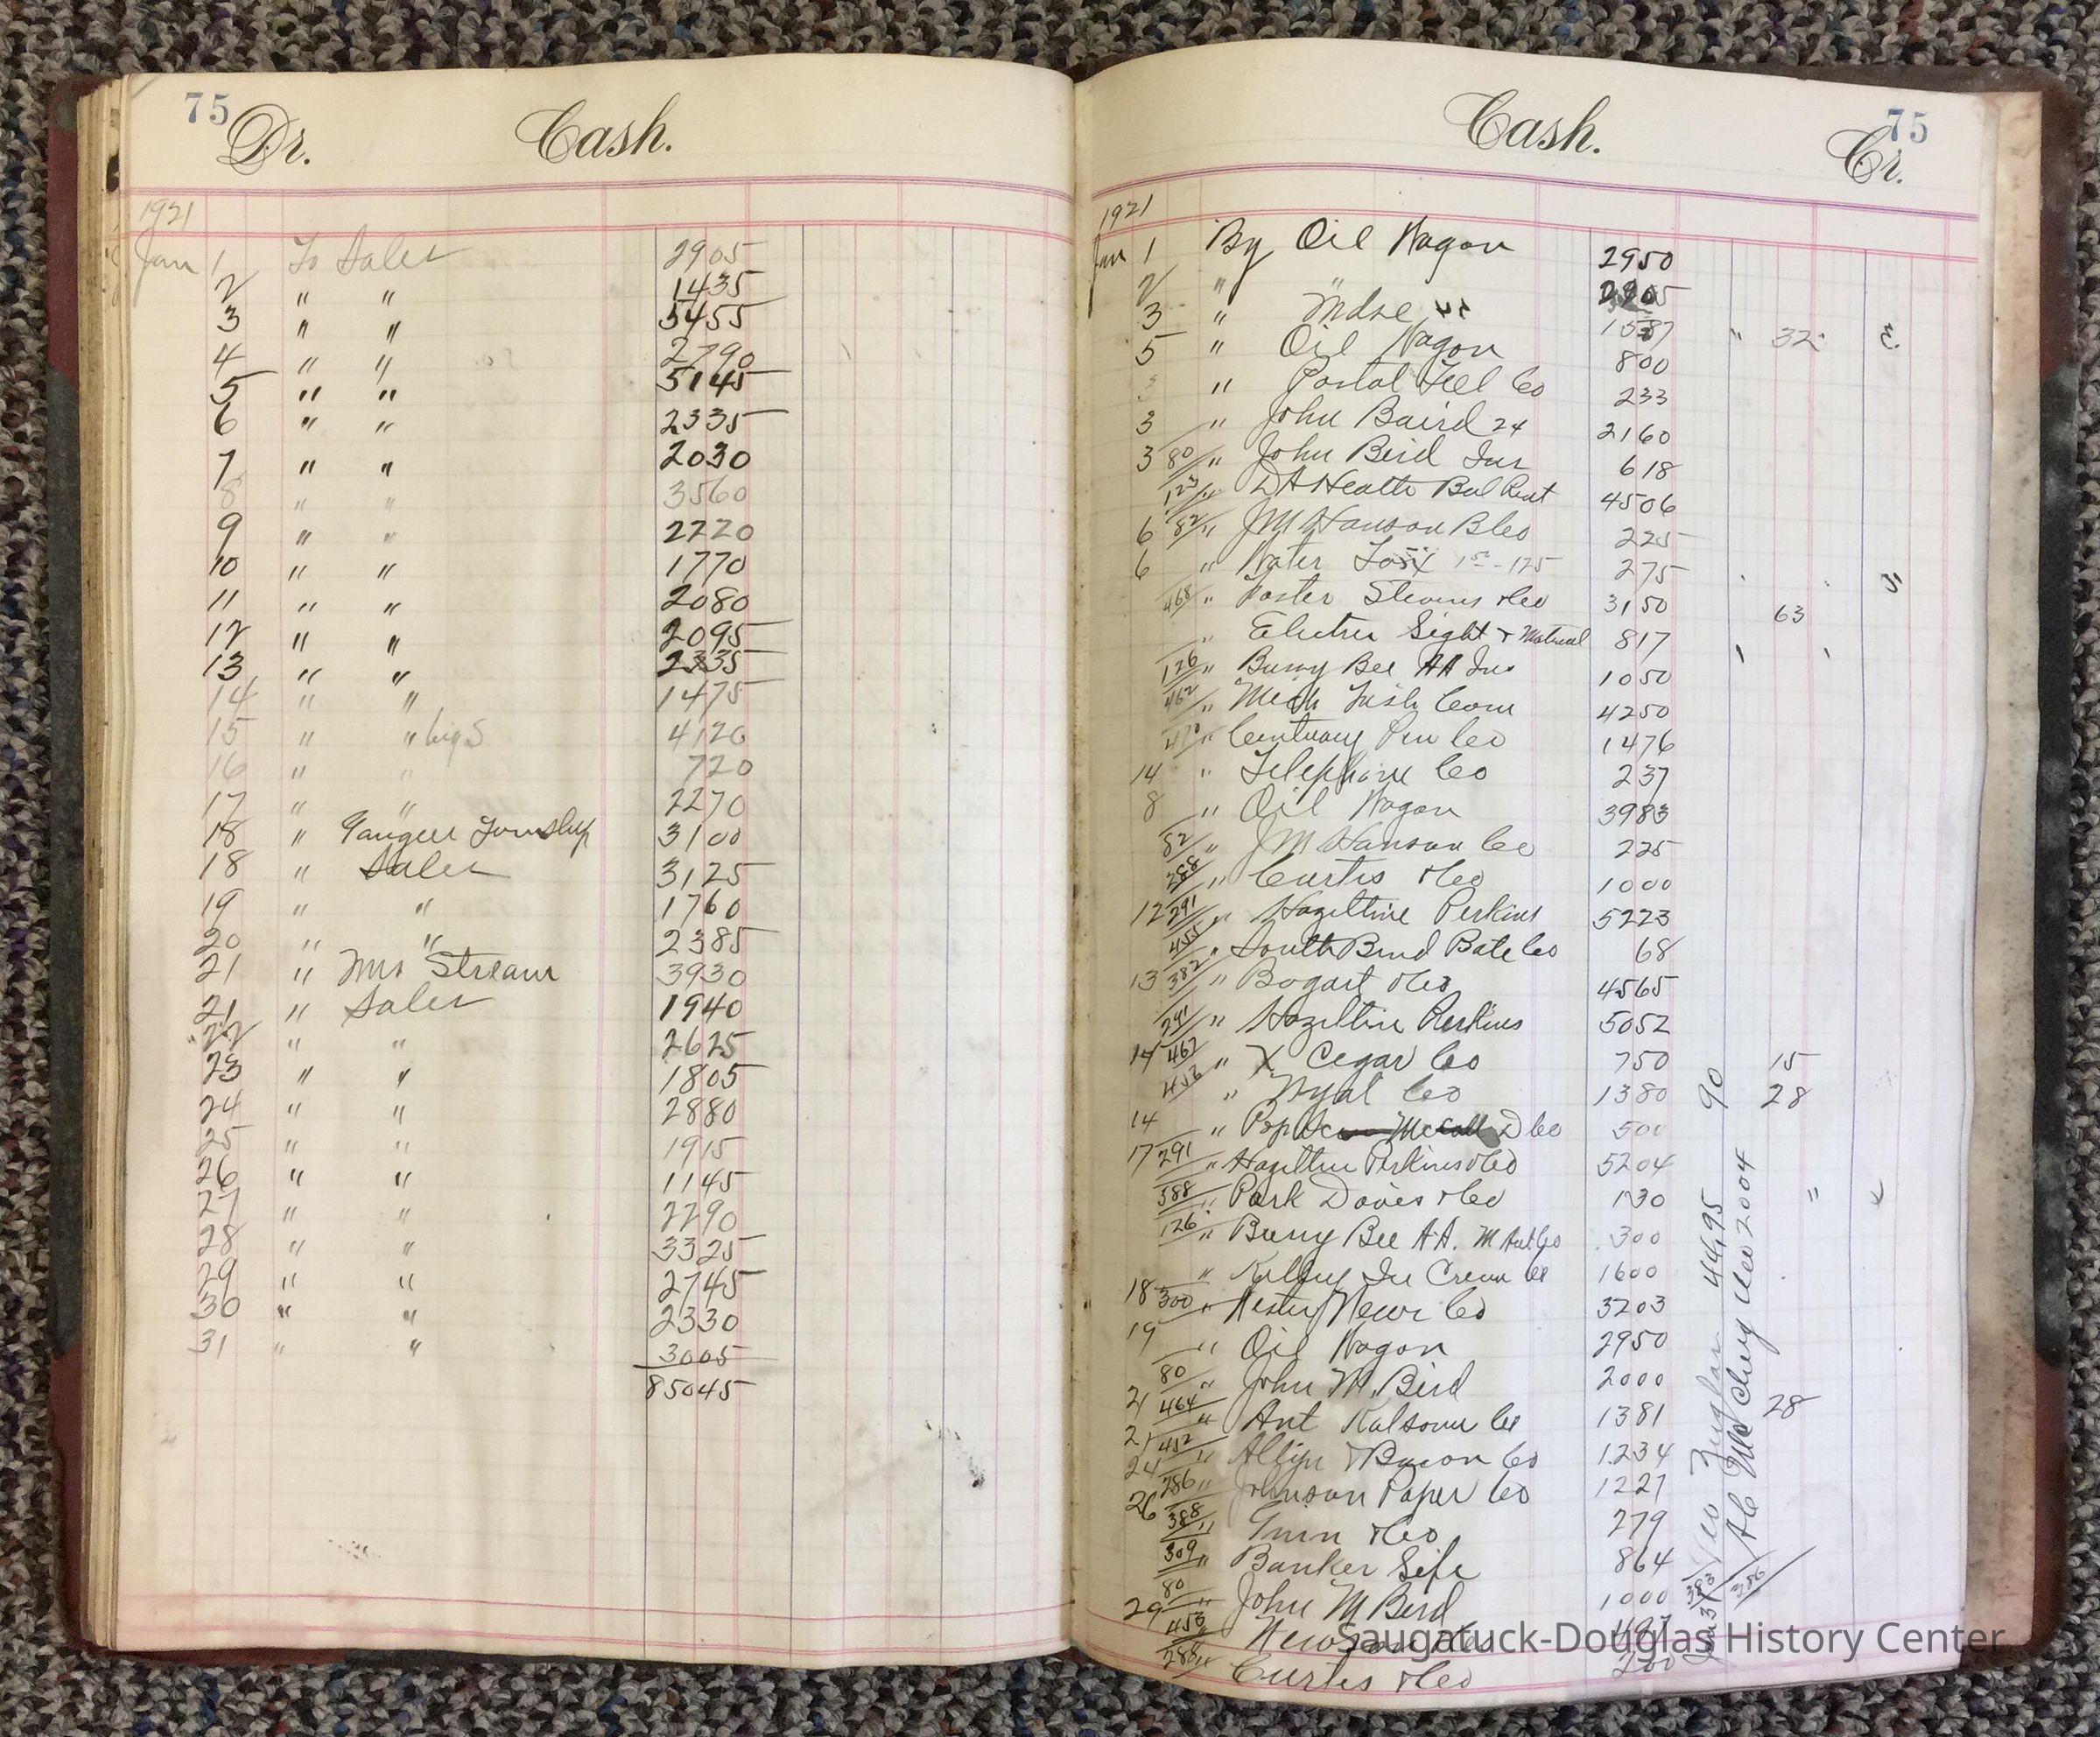 75
Dr. Cash.
1921
Jan 1 To Sales 2905
2 " " 1435
3 " " 5455
4 " " 2790
5 " " 5145
6 " " 2335
7 " " 2030
8 " " 3560
9 " " 2220
10 " " 1770
11 " " 2080
12 " " 2095
13 " " 2335
14 " " 1475
15 " " 4120
16 " " 720
17 " " 2270
18 " Township 3100
18 " Sales 3125
19 " " 1760
20 " " 2385
21 " Mrs Stream 3930
21 " Sales 1940
22 " " 2625
23 " " 1805
24 " " 2880
25 " " 1915
26 " " 1145
27 " " 2290
28 " " 3325
29 " " 2745
30 " " 2330
31 " " 3005
85045
Cash. 75
Cr.
1921
Jan 1 By Oil Wagon 2950
2 "
3 " Mdse 1587 " 32
5 " Oil Wagon 800
" Postal Tell Co 233
3 " John Baird 24 2160
3 80 " John Bird Ins 618
123 " D A Heath Bal Rent 4506
6 82 " J M Hanson 225
6 " Water 275
468 " Foster Stevens & Co 3150 63
" Light & Material 817
126 " Bussy Bee AA Ins 1050
462 " Mich Fish Com 4250
470 " Co 1476
14 " Telephone Co 237
8 " Oil Wagon 3983
82 " J M Hanson Co 225
288 " Curtis & Co 1000
12 291 " Hazeltine Perkins 5223
455 " South Bend Bate Co 68
13 382 " Bogart & Co 4565
291 " Hazeltin Perkins 5052
14 467 " X Cegar Co 750 15
453 " Nyal Co 1380 28
14 " Co 500
17 291 " Hazeltin Perkins & Co 5204
388 " Park Daves & Co 130 "
126 " Bussy Bee A.A. 300
" Ice Cream Co 1600
18 300 " News Co 3203
19 " Oil Wagon 2950
80 " John M. Bird 2000
21 464 " Ant Kalsomu Co 1381 28
21 452 " & Bacon Co 1234
24 286 " Johnson Paper Co 1227
26 388 " & Co 279
309 " Banker Life 864
80 " John M Bird 1000
29 453 "
288 " Curtis & Co 200
44,95 90
2004
383
386
Saugatuck-Douglas History Center